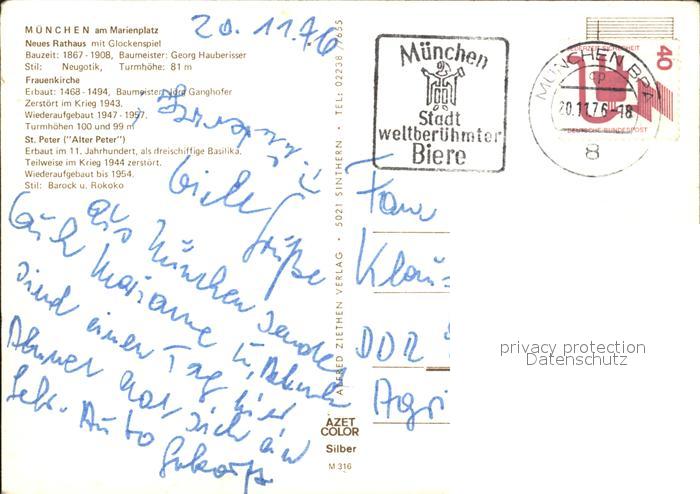 MÜNCHEN am Marienplatz
Neues Rathaus mit Glockenspiel
Bauzeit: 1867-1908, Baumeister: Georg Hauberisser
Stil: Neugotik, Turmhöhe: 81 m
Frauenkirche
Erbaut: 1468-1494, Baumeister: Jörg Ganghofer
Zerstört im Krieg 1943.
Wiederaufgebaut 1947-1957.
Turmhöhen 100 und 99 m
St. Peter ("Alter Peter")
Erbaut im 11. Jahrhundert, als dreischiffige Basilika.
Teilweise im Krieg 1944 zerstört.
Wiederaufgebaut bis 1954.
Stil: Barock u. Rokoko
20.11.76
viele Grüße
aus München sendet
Euch Marianne u.
sind einen Tag hier
hat sich ein
Auto gekauft
ALFRED ZIETHEN VERLAG • 5021 SINTHERN • TEL: 02238 / 7655
AZET
COLOR
Silber
M 316
München
Stadt
weltberühmter
Biere
MÜNCHEN BPA
cp
20.11.76-18
8
JEDERZEIT SICHERHEIT
40
DEUTSCHE BUNDESPOST
Fam
Klaus
DDR
Agri
privacy protection
Datenschutz